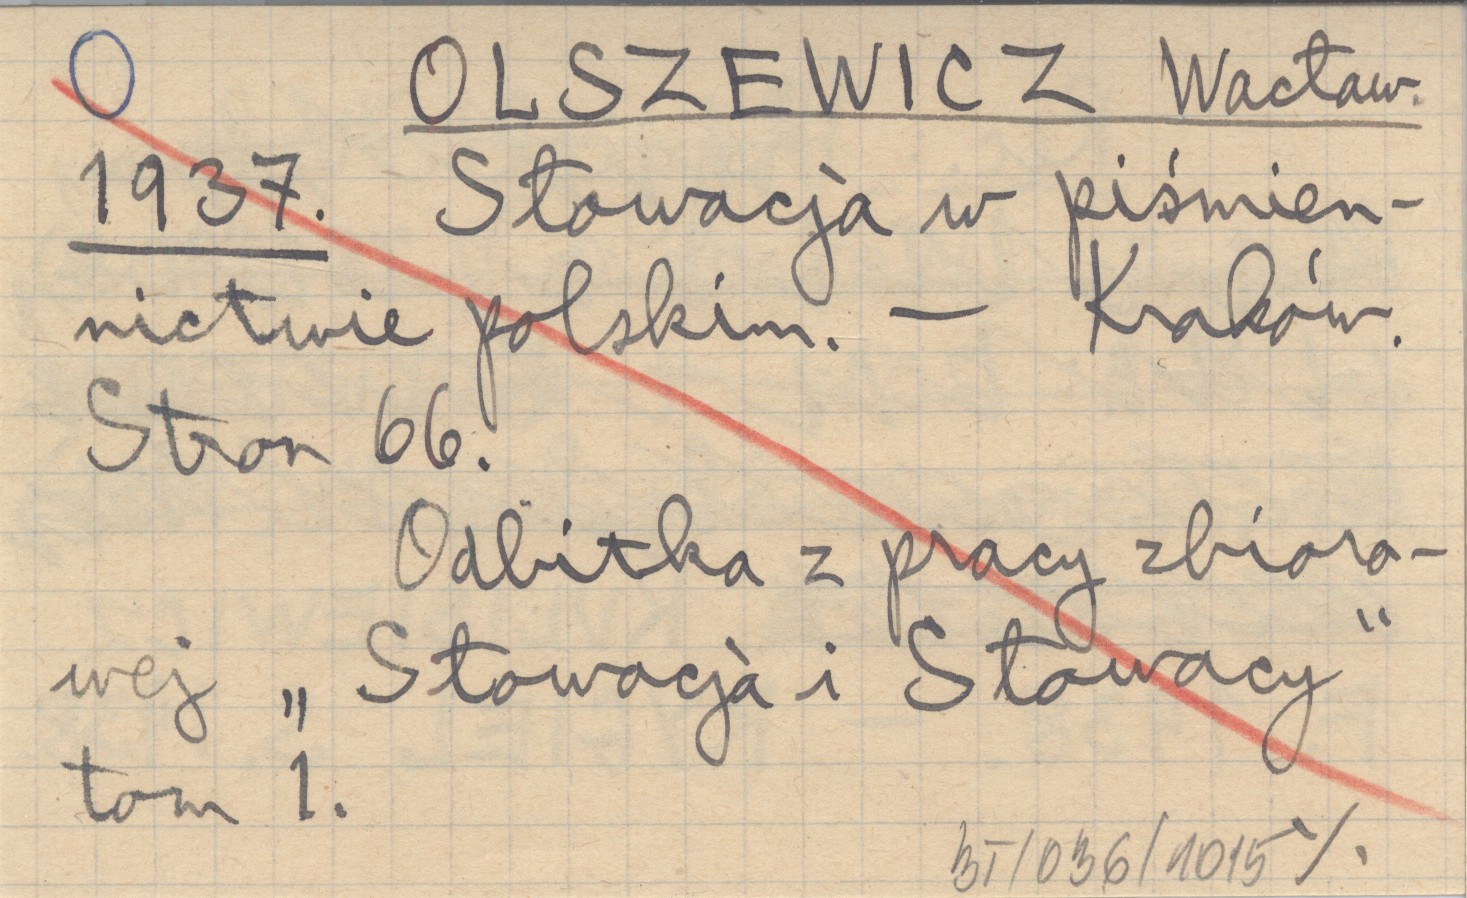 O OLSZEWICZ Wacław.
1937. Słowacja w piśmien-
nictwie polskim. — Kraków.
Stron 66.
Odbitka z pracy zbioro-
wej „Słowacja i Słowacy"
tom 1.
/036/1015